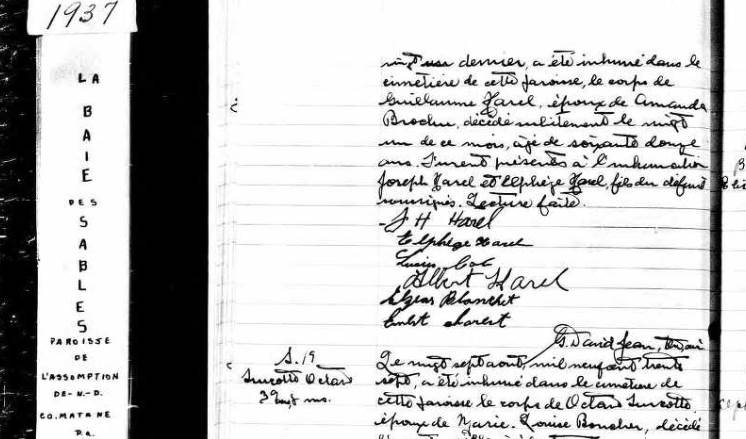 1937
LA
BAIE
DES
SABLES
PAROISSE
DE
L'ASSOMPTION
DE-N.-D.
CO. MATANE
P.Q.
vingt un dernier, a été inhumé dans le
cimetière de cette paroisse, le corps de
Guillaume Harel, époux de Amanda
Brochu, décédé subitement le vingt
un de ce mois, âgé de soixante douze
ans. Furent présents à l'inhumation
Joseph Harel et Elphège Harel, fils du défunt
soussignés. Lecture faite.
J H Harel
Elphège Harel
Albert Harel
Elzéar Blanchet
G. David Jean, Ptre curé
S. 19
Turcotte Octave
Le vingt sept août, mil neuf cent trente
sept, a été inhumé dans le cimetière de
cette paroisse le corps de Octave Turcotte
époux de Marie-Louise Boucher, décédé